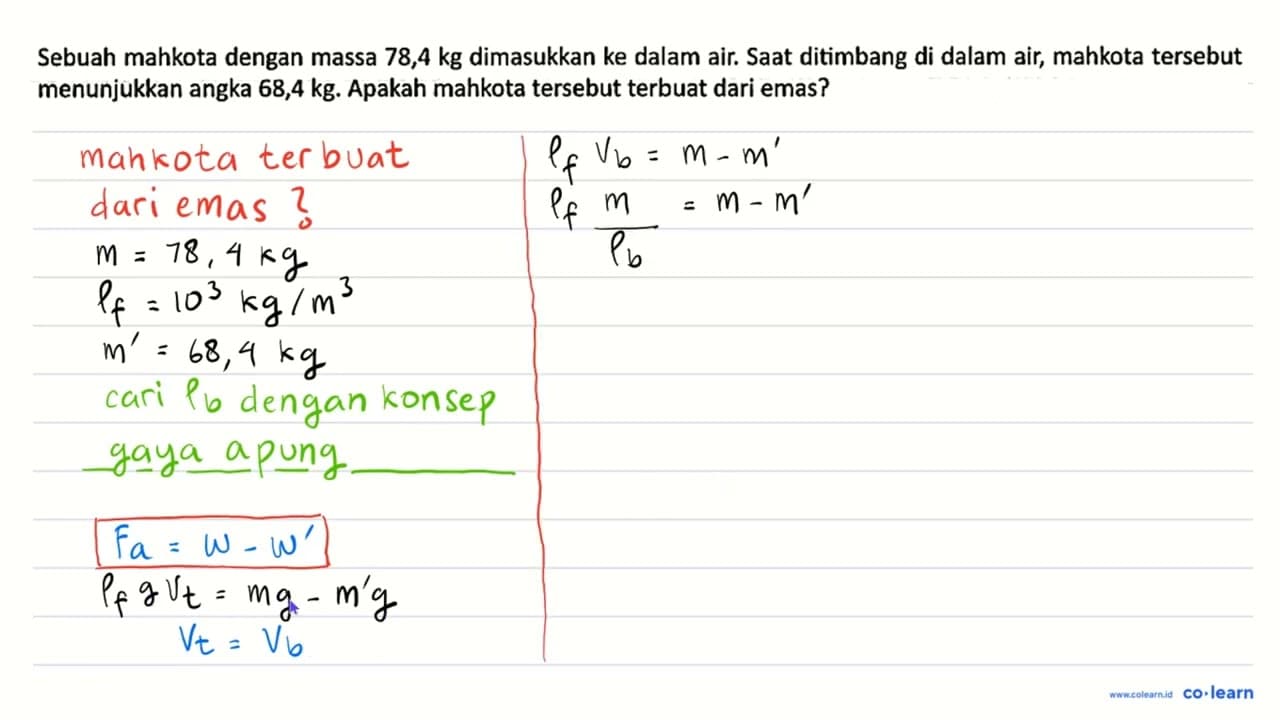 Sebuah mahkota dengan massa 78,4 kg dimasukkan ke dalam air. Saat ditimbang di dalam air, mahkota tersebut
menunjukkan angka 68,4 kg. Apakah mahkota tersebut terbuat dari emas?
mahkota terbuat
dari emas ?
m = 78,4 kg
ρf = 10³ kg/m³
m' = 68,4 kg
cari ρb dengan konsep
gaya apung
Fa = w - w'
ρf g Vt = mg - m'g
Vt = Vb
ρf Vb = m - m'
ρf m/ρb = m - m'
www.colearn.id co·learn